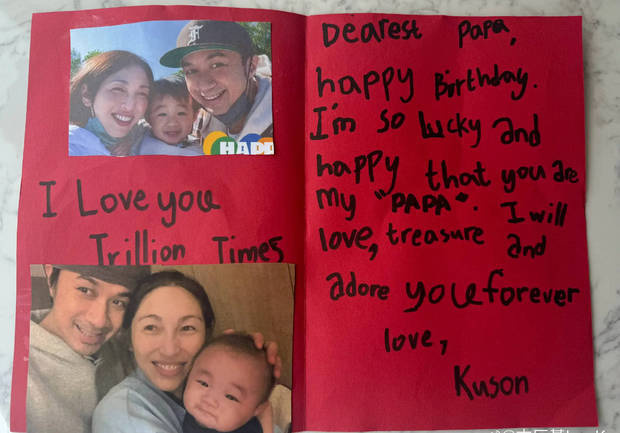 HAPP
I Love you
Trillion Times
Dearest Papa,
happy Birthday.
I'm so lucky and
happy that you are
my "PAPA". I will
love, treasure and
adore you forever
love,
Kuson